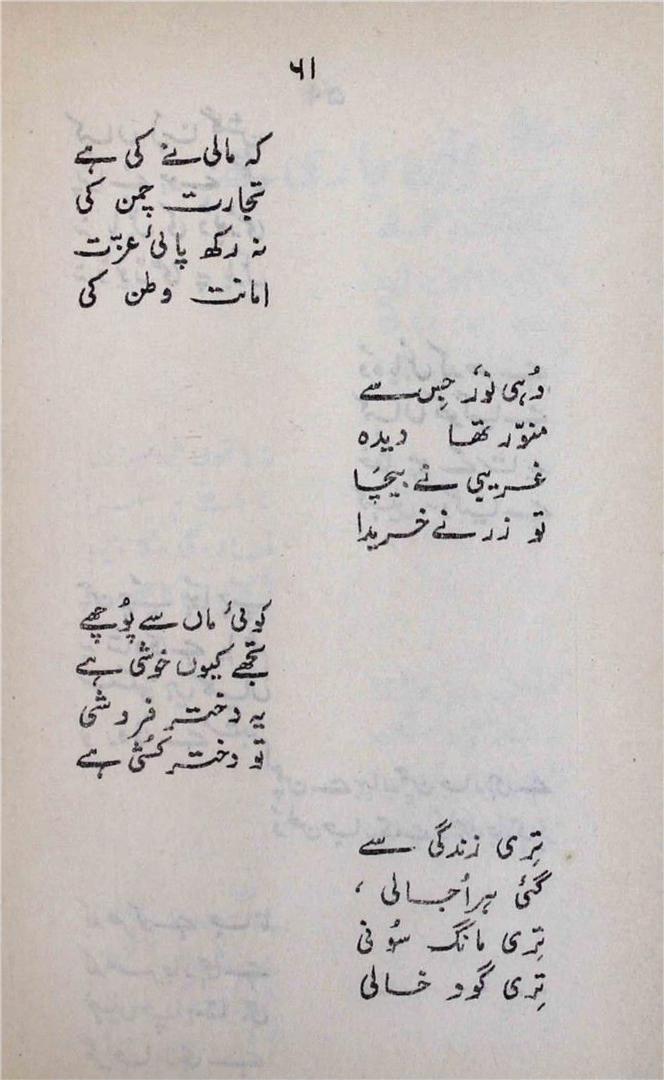 ۶۱
کہ مالی نے کی ہے
تجارت چمن کی
نہ رکھ پائی عزّت
امانت وطن کی
وُہی نوُر جِس سے
منوّر تھا دیدہ
غریبی نے بیچَا
تو زر نے خریدا
کوئی ماں سے پوُچھے
تجھے کیوں خوشی ہے
یہ دخترِ فروشی
تو دختر کشُی ہے
تِری زندگی سے
گئی ہر اُجالی ،
تِری مانگ سوُنی
تِری گود خالی